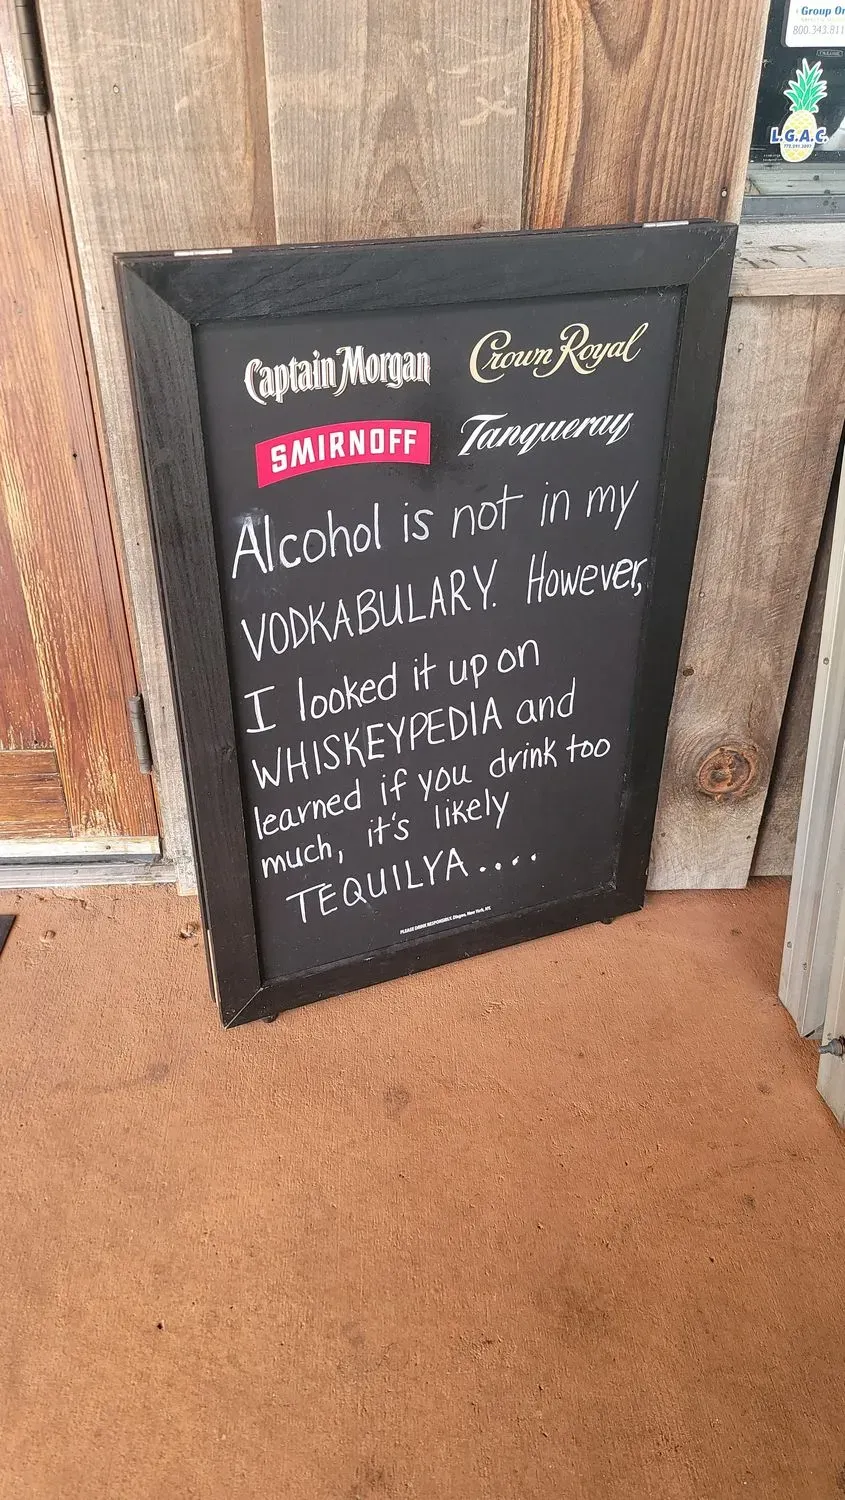 Group Or
800.343.811
L.G.A.C.
Captain Morgan
Crown Royal
SMIRNOFF
Tanqueray
Alcohol is not in my
VODKABULARY. However,
I looked it up on
WHISKEYPEDIA and
learned if you drink too
much, it's likely
TEQUILYA....
PLEASE DRINK RESPONSIBLY. Diageo, New York, NY.